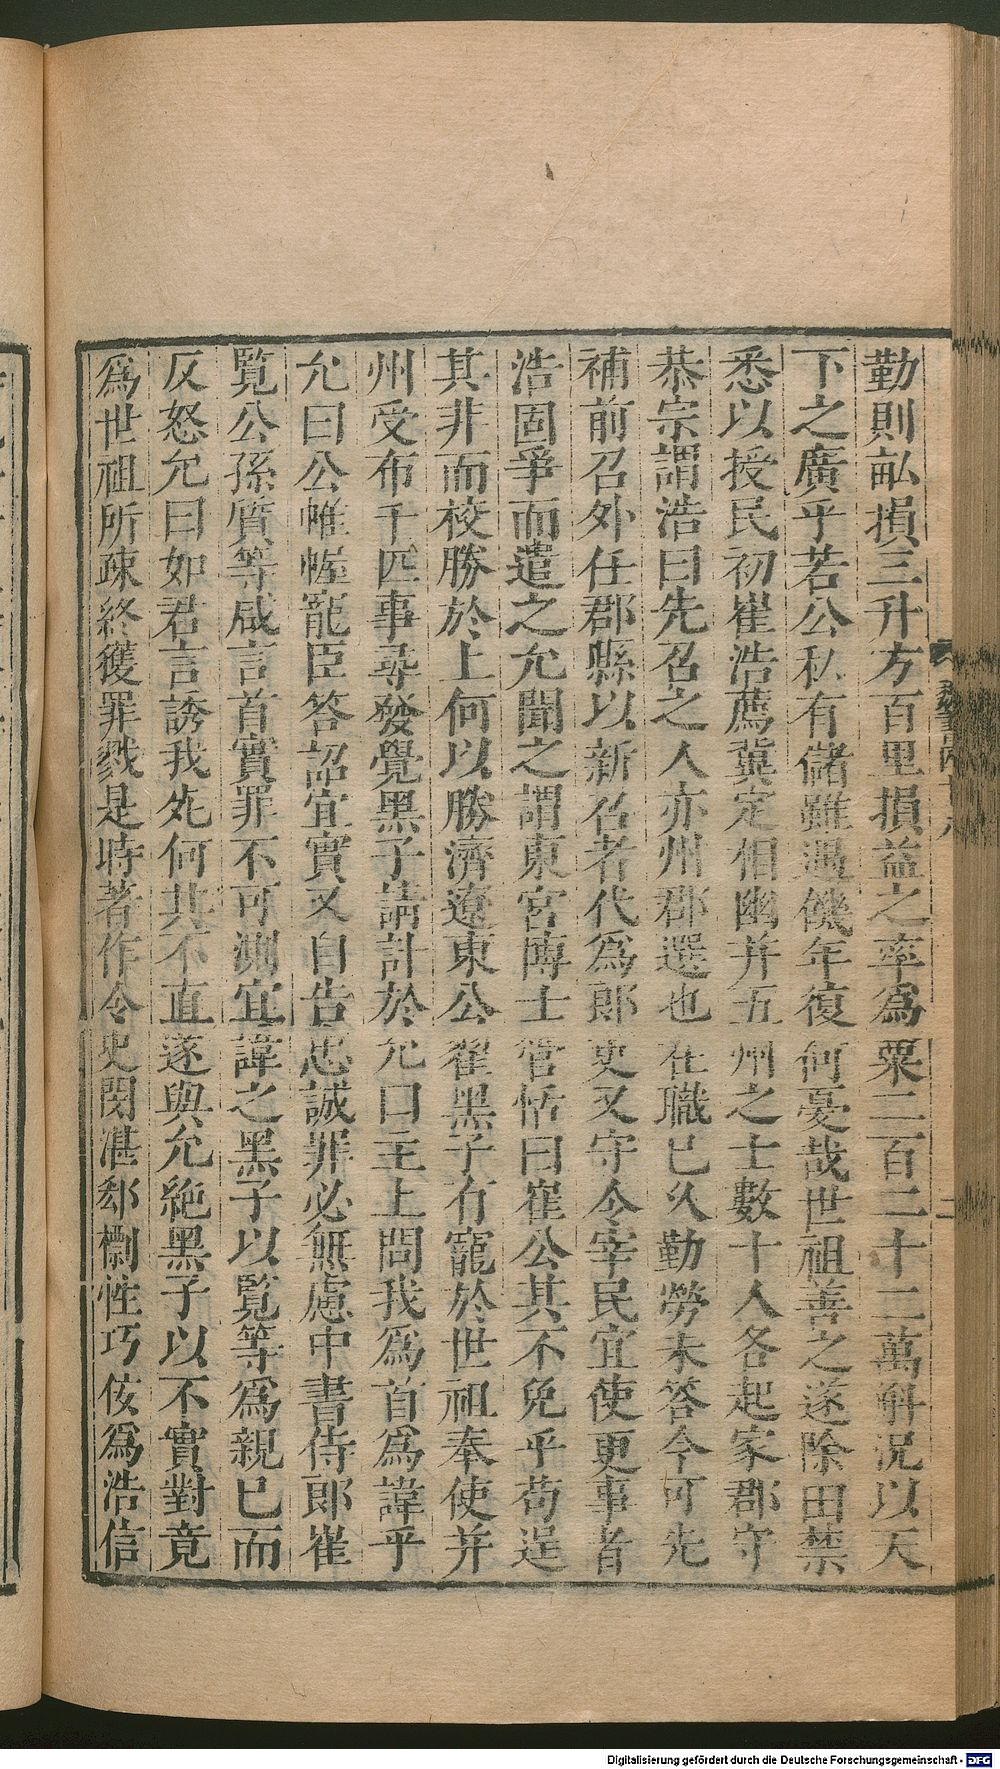 勤則畝損三升方百里損益之率爲粟二百二十二萬斛況以天
下之廣乎若公私有儲雖遇饑年復何憂哉世祖善之遂除田禁
悉以授民初崔浩薦冀定相幽并五州之士數十人各起家郡守
恭宗謂浩曰先召之人亦州郡選也在職已久勤勞未答今可先
補前召外任郡縣以新召者代爲郎吏又守令宰民宜使更事者
浩固爭而遣之允聞之謂東宮博士管恬曰崔公其不免乎苟逞
其非而校勝於上何以勝濟遼東公翟黑子有寵於世祖奉使并
州受布千匹事尋發覺黑子請計於允曰主上問我爲首爲諱乎
允曰公帷幄寵臣答詔宜實又自告忠誠罪必無慮中書侍郎崔
覽公孫質等咸言首實罪不可測宜諱之黑子以覽等爲親已而
反怒允曰如君言誘我死何其不直遂與允絶黑子以不實對竟
爲世祖所疎終獲罪戮是時著作令史閔湛郄㯹性巧佞爲浩信
Digitalisierung gefördert durch die Deutsche Forschungsgemeinschaft - DFG